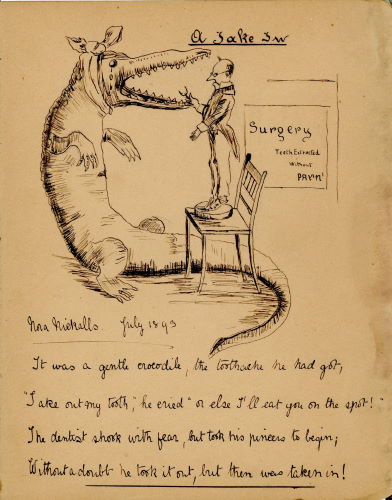 A Take In
Surgery
Teeth Extracted
Without
PAYIN'
Nora Nickalls. July 1893
It was a gentle crocodile, the toothache he had got,
"Take out my tooth," he cried "or else I'll eat you on the spot!"
The dentist shook with fear, but took his pincers to begin;
Without a doubt he took it out, but then was taken in!